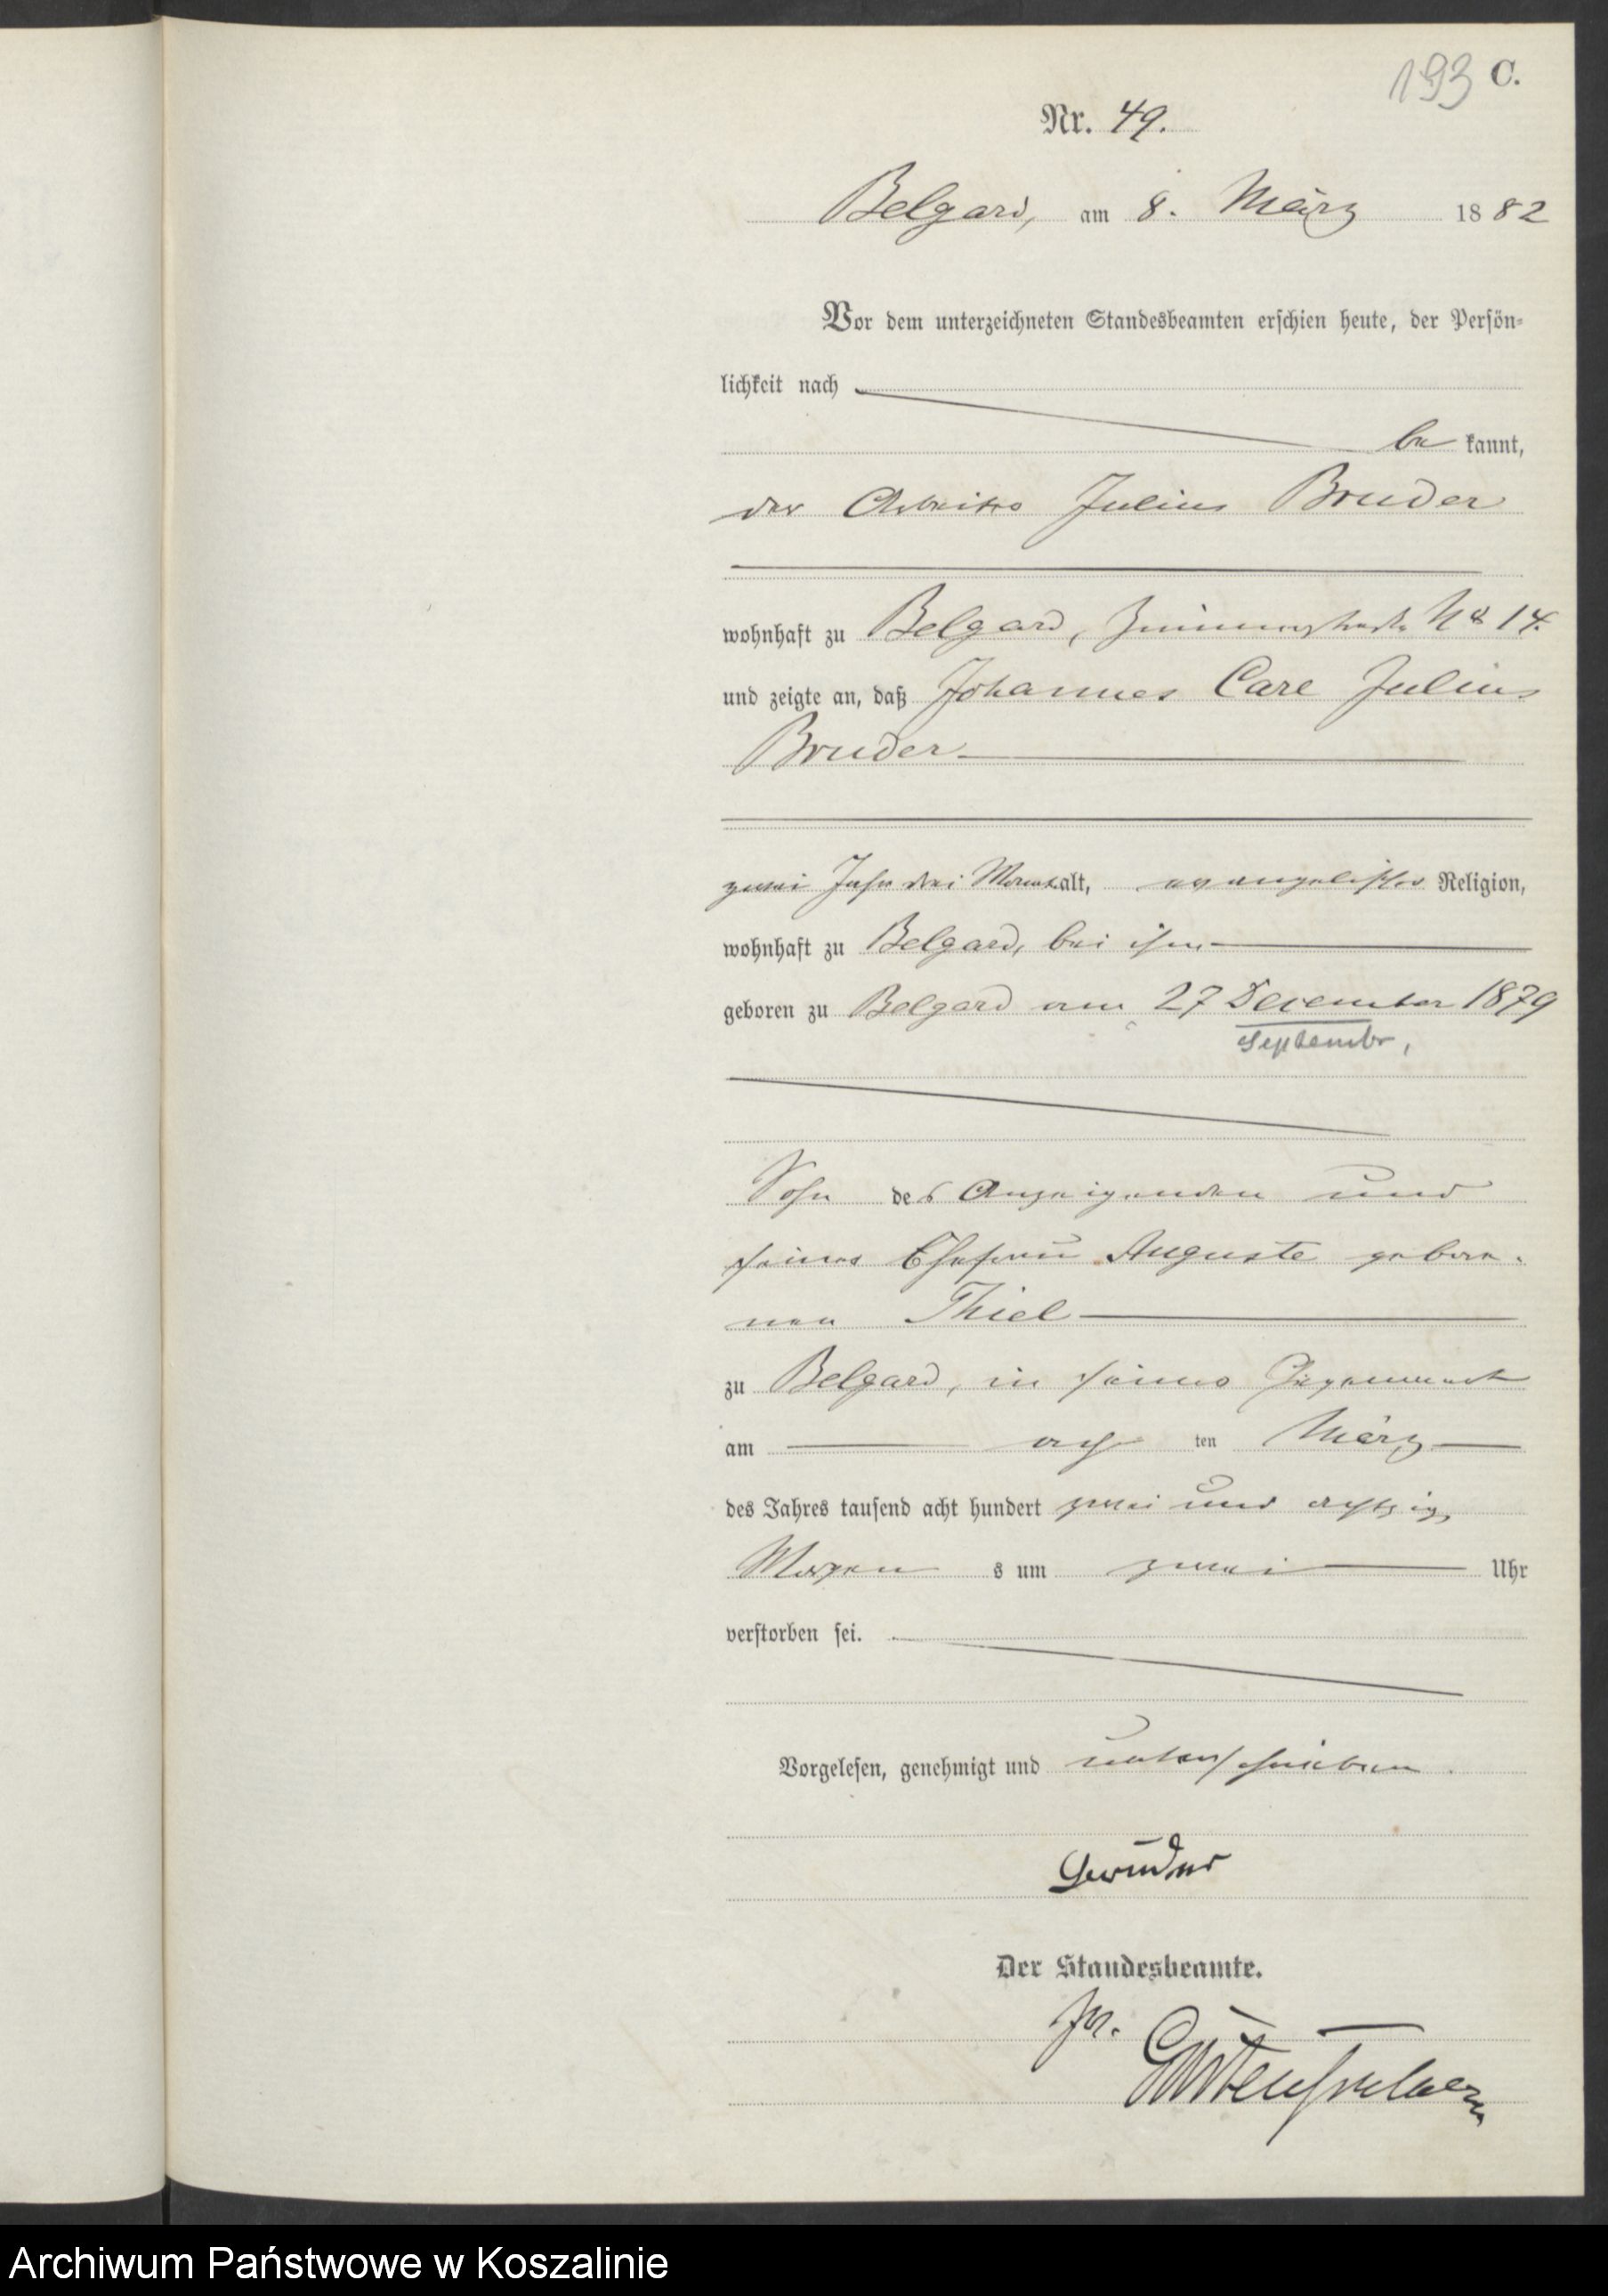 193 C.
Nr. 49.
Belgard, am 8. März 1882
Vor dem unterzeichneten Standesbeamten erschien heute, der Persön-
lichkeit nach
be kannt,
der Arbeiter Julius Bruder
wohnhaft zu Belgard, No 14.
und zeigte an, daß Johannes Carl Julius
Bruder
zwei Jahr drei Monat alt, evangelischer Religion,
wohnhaft zu Belgard, bei ihm
geboren zu Belgard am 27 December 1879
September,
Sohn des Anzeigenden und
seiner Ehefrau Auguste gebore-
nen Thiel
zu Belgard, in seiner Gegenwart
am ach ten März
des Jahres tausend acht hundert zwei und achtzig
Morgen s um zwei Uhr
verstorben sei.
Vorgelesen, genehmigt und unterschrieben.
Bruder
Der Standesbeamte.
Archiwum Państwowe w Koszalinie